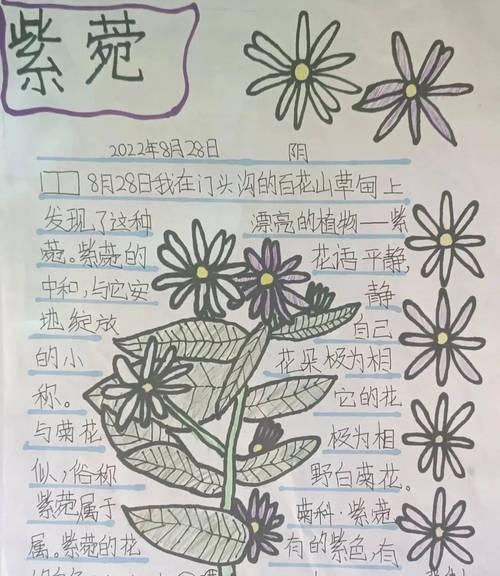 紫菀
2022年8月28日 阴
8月28日我在门头沟的百花山草甸上
发现了这种 漂亮的植物—紫
菀。紫菀的 花语平静,
中和,与它安 静
地绽放 自己
的小 花朵极为相
称。 它的花
与菊花 极为相
似,俗称 野白菊花。
紫菀属于 菊科·紫菀
属。紫菀的花 有的紫色,有